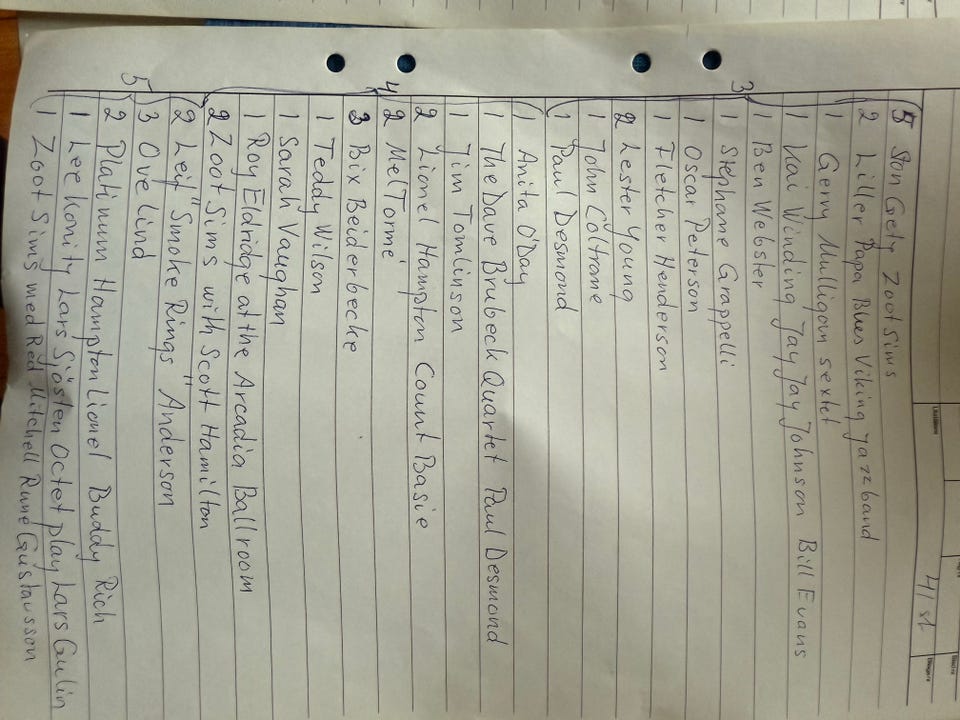 41 st
5 Stan Getz Zoot Sims
2 Liller Papa Blues Viking jazzband
1 Gerry Mulligan sextet
1 Kai Winding Jay Jay Johnson Bill Evans
1 Ben Webster
3
1 Stéphane Grappelli
1 Oscar Peterson
1 Fletcher Henderson
2 Lester Young
1 John Coltrane
1 Paul Desmond
1 Anita O'Day
1 The Dave Brubeck Quartet Paul Desmond
1 Jim Tomlinson
2 Lionel Hampton Count Basie
2 Mel Tormé
4
3 Bix Beiderbecke
1 Teddy Wilson
1 Sarah Vaughan
1 Roy Eldridge at the Arcadia Ballroom
2 Zoot Sims with Scott Hamilton
2 Leif "Smoke Rings" Anderson
3 Ove Lind
5
2 Platinum Hampton Lionel Buddy Rich
1 Lee Konitz Lars Sjösten Octet play Lars Gullin
1 Zoot Sims med Red Mitchell Rune Gustavsson